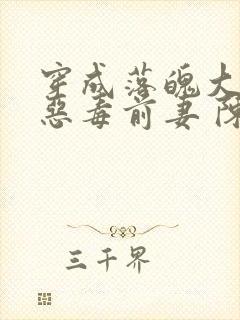 穿成落魄大
惡毒前妻 陳
三千界